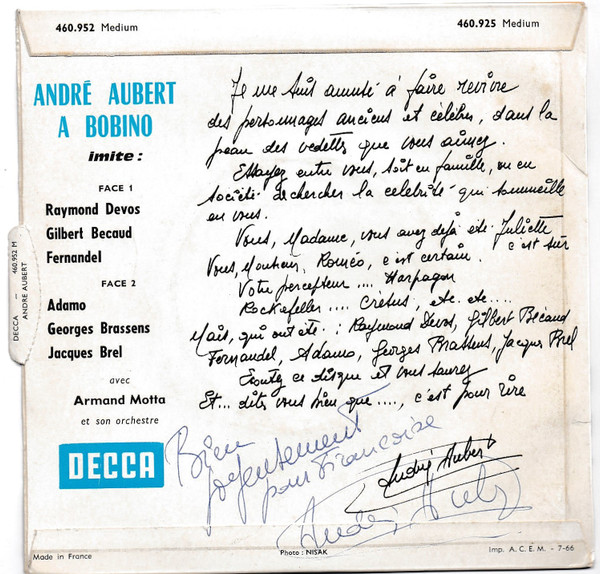 460.952 Medium
460.925 Medium
ANDRÉ AUBERT
A BOBINO
imite :
FACE 1
Raymond Devos
Gilbert Becaud
Fernandel
FACE 2
Adamo
Georges Brassens
Jacques Brel
avec
Armand Motta
et son orchestre
DECCA
DECCA — 460.952 M
ANDRE AUBERT
Je me suis amusé à faire revivre
des personnages anciens et célèbres, dans la
peau des vedettes que vous aimez.
Essayez entre vous, soit en famille, ou en
société de chercher la célébrité qui sommeille
en vous.
Vous, Madame, vous avez déjà été Juliette
c'est sûr
Vous, Monsieur, Roméo, c'est certain.
Votre percepteur .... Harpagon
Rockefeller .... Crésus, etc. etc....
Mais, qui ont été : Raymond Devos, Gilbert Bécaud
Fernandel, Adamo, Georges Brassens, Jacques Brel
Ecoutez ce disque et vous saurez
Et... dites vous bien que ...., c'est pour rire
André Aubert
Bien
pour Françoise
André Aubert
Made in France
Photo : NISAK
Imp. A.C.E.M. - 7-66